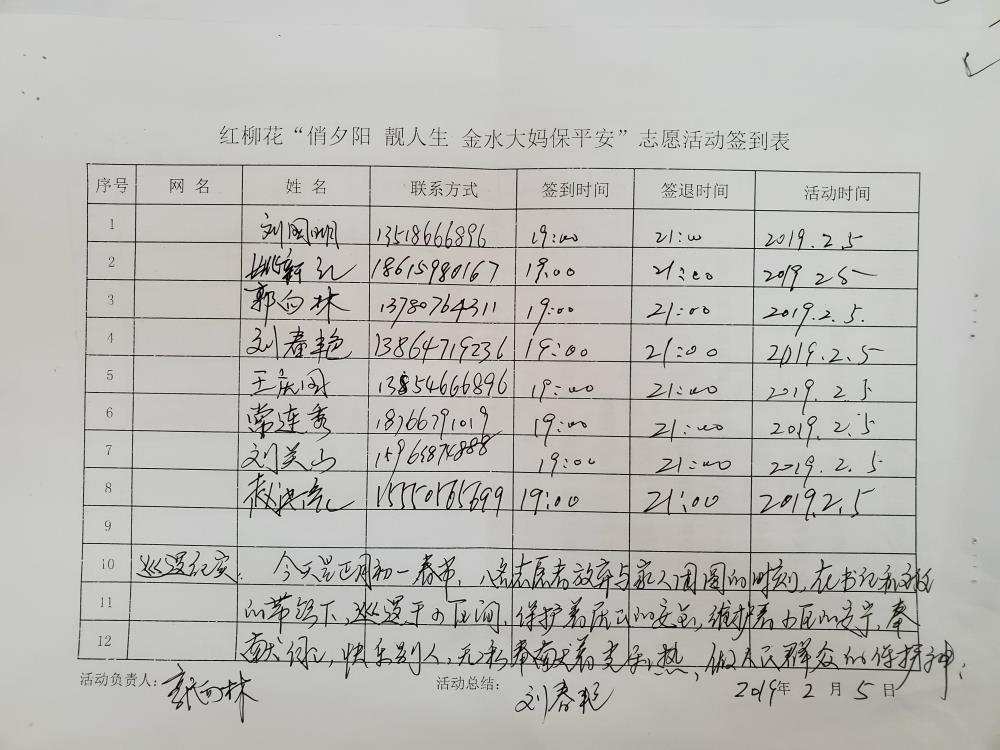 红柳花“俏夕阳 靓人生 金水大妈保平安”志愿活动签到表
序号 网 名 姓 名 联系方式 签到时间 签退时间 活动时间
1 刘国明 13518666896 19:00 21:00 2019.2.5
2 姚新礼 18615980167 19:00 21:00 2019 2 5
3 郭向林 13780764311 19:00 21:00 2019.2.5.
4 刘春艳 13864719236 19:00 21:00 2019.2.5
5 王庆国 13854666896 19:00 21:00 2019.2.5
6 常连秀 18766791019 19:00 21:00 2019.2.5
7 刘美山 15965874888 19:00 21:00 2019.2.5
8 15550565699 19:00 21:00 2019.2.5
9
10 巡逻纪实: 今天是正月初一春节,八名志愿者放弃与家人团圆的时刻,在书记和主任
11 的带领下,巡逻于小区间,保护着居民的安全,维护着小区的安宁,奉
12 献自己,快乐别人,无私奉献着光和热,做人民群众的保护神;
活动负责人: 郭向林 活动总结: 刘春艳 2019年 2 月 5 日